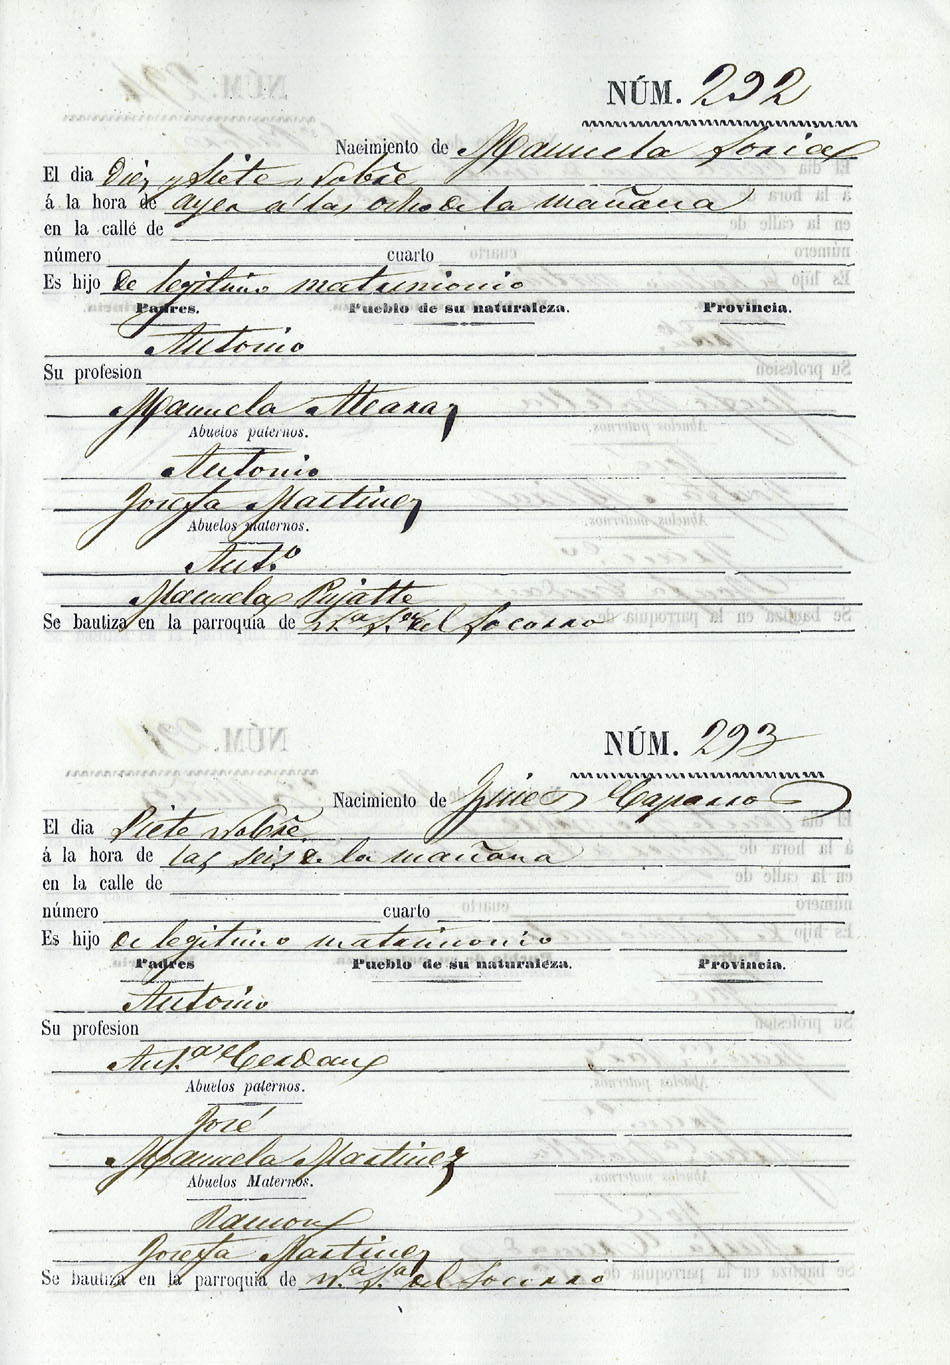 NÚM. 292
Nacimiento de Manuela Soria
El dia Diez y Siete Nobre
á la hora de ayer a las ocho de la mañana
en la calle de
número cuarto
Es hijo de legitimo matrimonio
Padres. Pueblo de su naturaleza. Provincia.
Antonio
Su profesion
Manuela Alcaraz
Abuelos paternos.
Antonio
Josefa Martinez
Abuelos maternos.
Ant.o
Manuela Pujalte
Se bautiza en la parroquia de N.a S.a del Socorro
NÚM. 293
Nacimiento de Gines Caparro
El dia Siete Nobre
á la hora de las seis de la mañana
en la calle de
número cuarto
Es hijo de legitimo matrimonio
Padres Pueblo de su naturaleza. Provincia.
Antonio
Su profesion
Ant.a Cerdan
Abuelos paternos.
José
Manuela Martinez
Abuelos Maternos.
Ramon
Josefa Martinez
Se bautiza en la parroquia de N.a S.a del Socorro